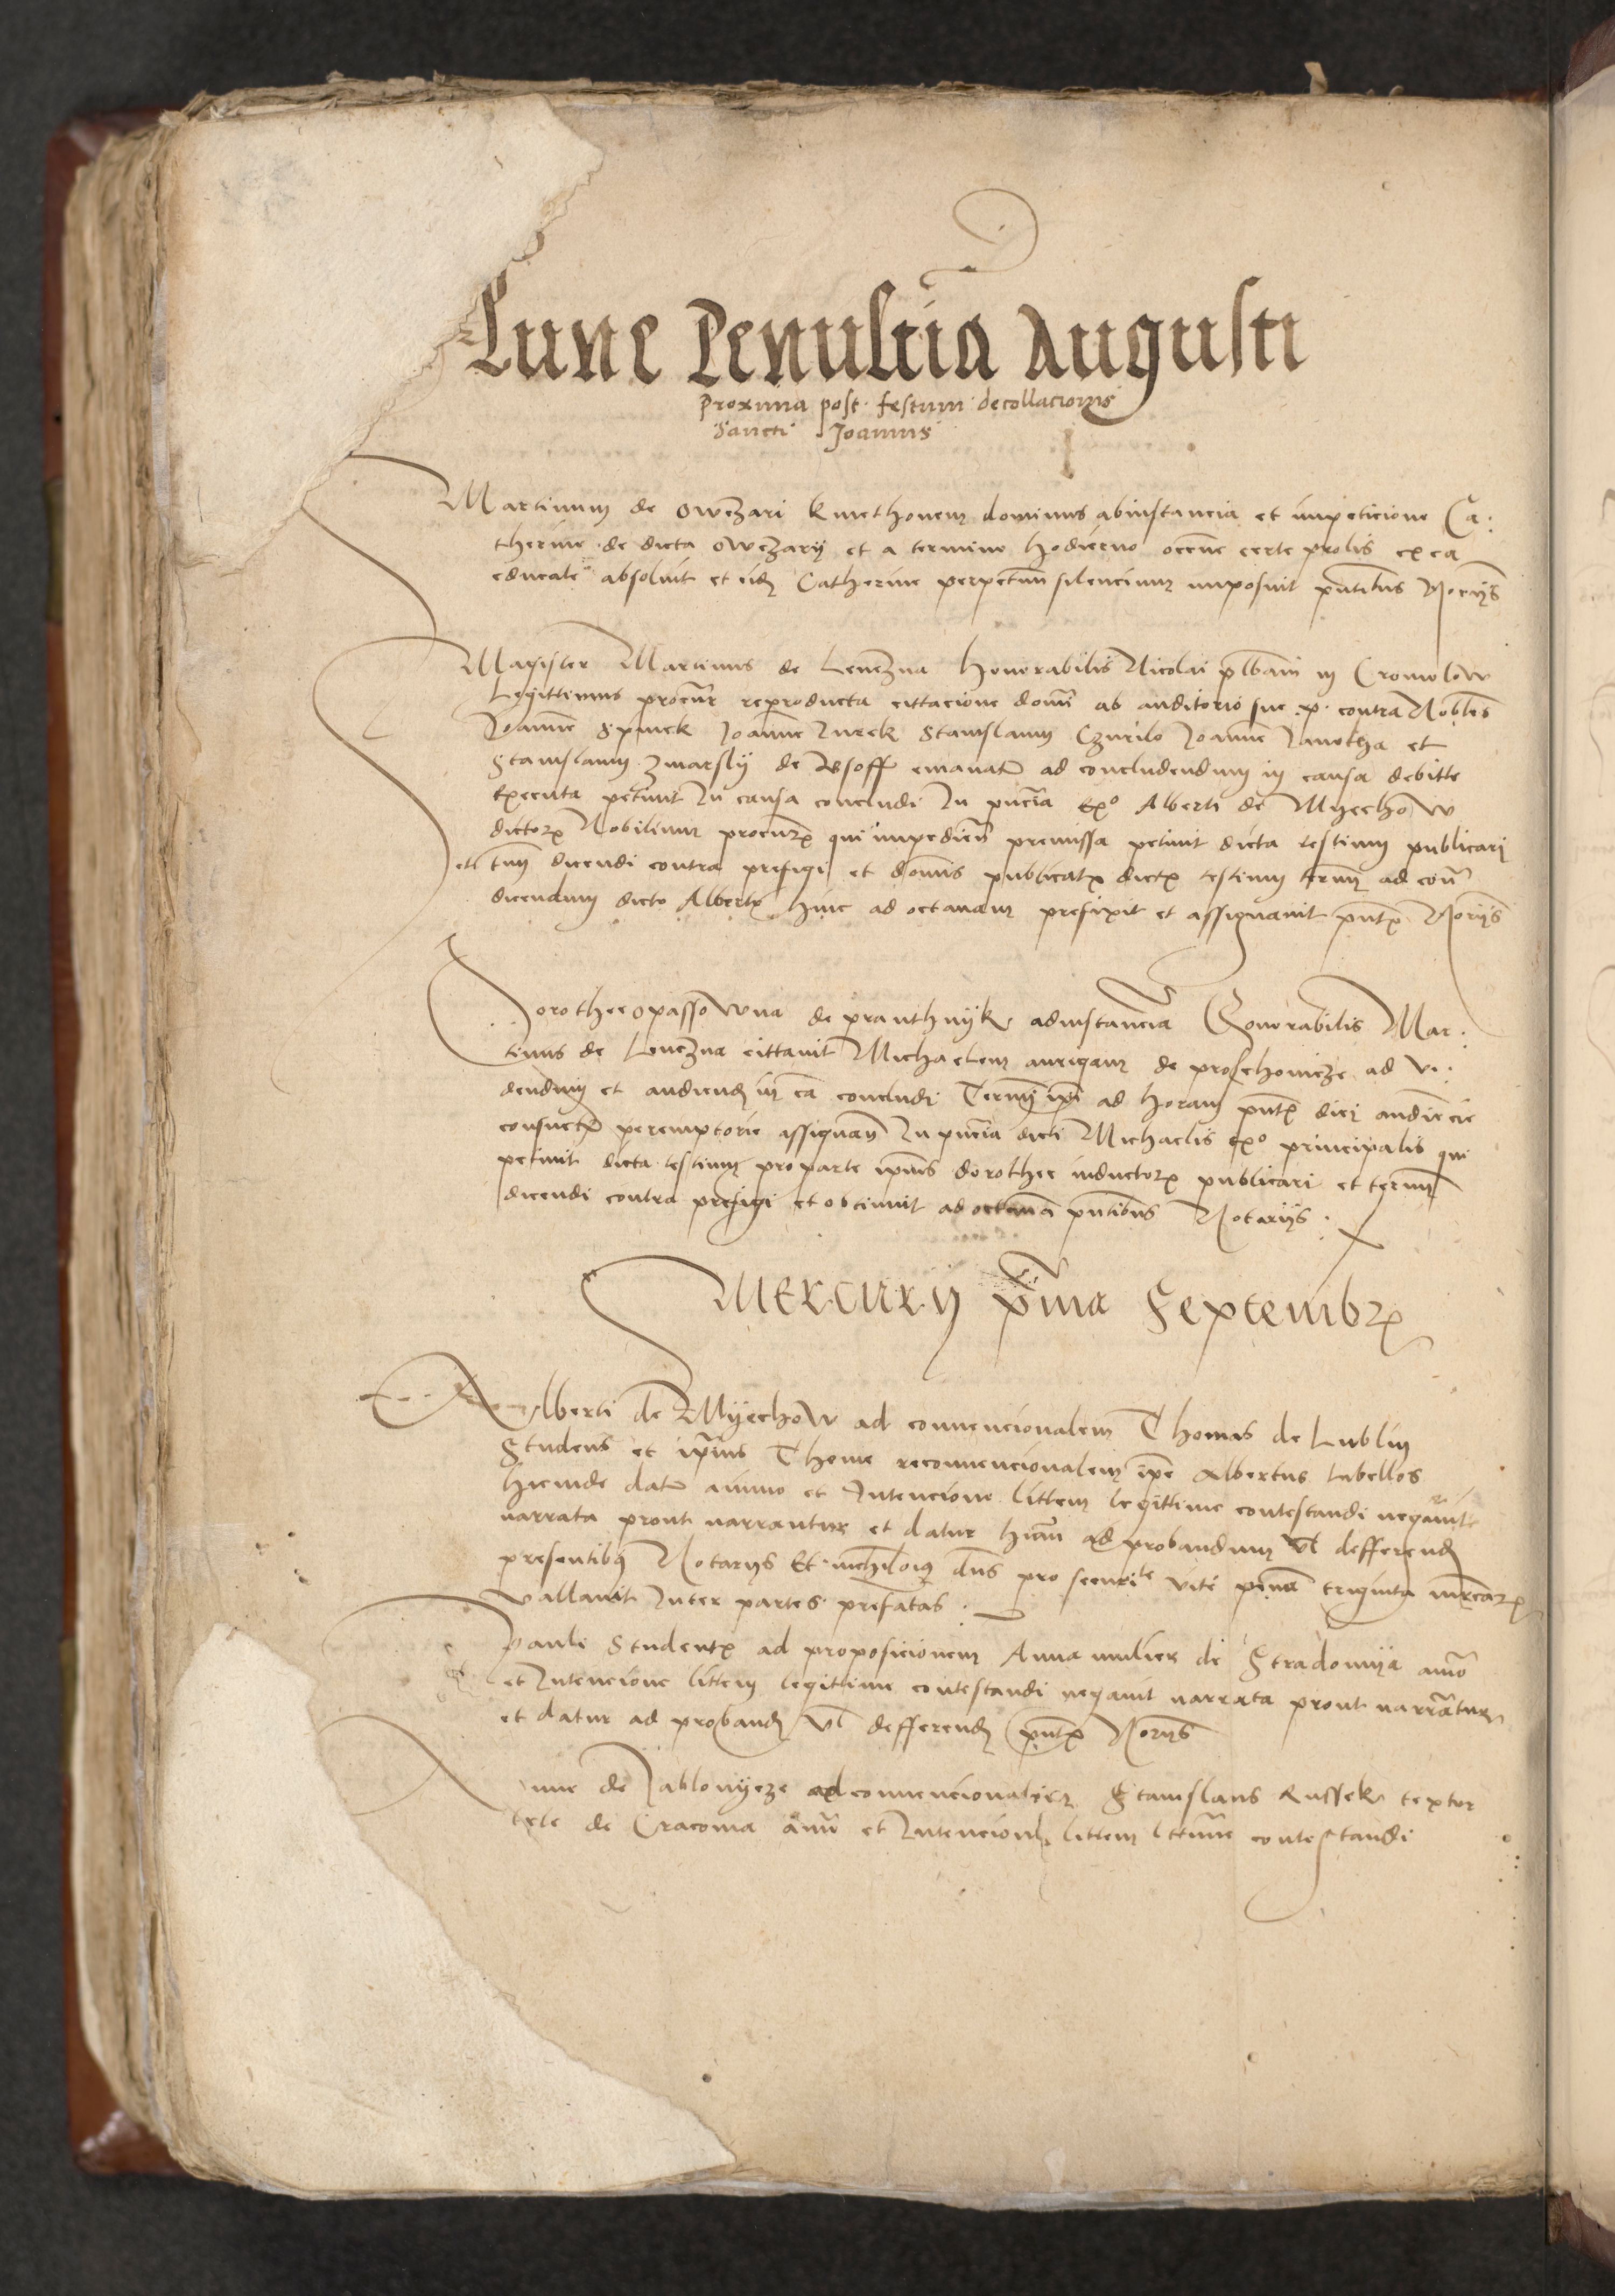 Lune Penultia Augusti
proxima post festum decollacionis
Sancti Joannis
Martinum de Owczari kmethonem dominus ab instancia et impeticione Ca
therine de dicta Owczary et a termino hodierno certe prolis ex ea
educate absoluit et eid Catherine perpetuum silencium imposuit pntibus Norijs
Magister Martinus de Lenczna Honorabilis Nicolai plbani in Cromolow
Legittimus procur reproducta cittacione domi ab auditorio sue p. contra Nobiles
Joanne Spinek Joanne Turek Stanislaum Czurilo Joanne Janotha et
Stanislaum Zmarsly de emanat ad concludendum in causa debitte
Executa petiuit In causa concludi In pncia exo Alberti de Myechow
dictor Nobilium procur qui impedien premissa petiuit dicta testium publicari
et tm dicendi contra prefigi et domis publicat dict testium termi ad con
dicendum dicto Albert hinc ad octauam prefixit et assignauit pnt Norijs
Dorothee opassowna de pranthnyk ad instancia Honorabilis Mar
tinus de Lenczna cittauit Michaelem aurigam de proschowicze ad vi
dendum et audiend in ca concludi Termi ipi ad horam pnt diei audiencie
consuet peremptorie assignan In pncia dicti Michaelis exo principalis qui
petiuit dicta testium pro parte ipius dorothee inductor publicari et termi
dicendi contra prefigi et obtinuit ad octaua pntibus Notarijs
Mercurij pma Septembr
Alberti de Myechow ad conuencionalem Thomas de Lublin
Studens et ipius Thome reconuencionalem ipe Albertus libellos
hicinde dat animo et Intencione littem legittime contestandi negauit
narrata prout narrantur et datur ad probandum vl defferend
presentibus Notarijs Et dns pro securite vite pena triginta mrcar
vallauit Inter partes prefatas
Pauli Student ad proposicionem Anna mulier de Stradomya aimo
et Intencione littem legittime contestandi negauit narrata prout narratur
et datur ad proband vl defferend pnt Norijs
Anne de Jablonycze ad conuencionalem Stanislaus Russek textor
tele de Cracouia et Intencione littem contestandi